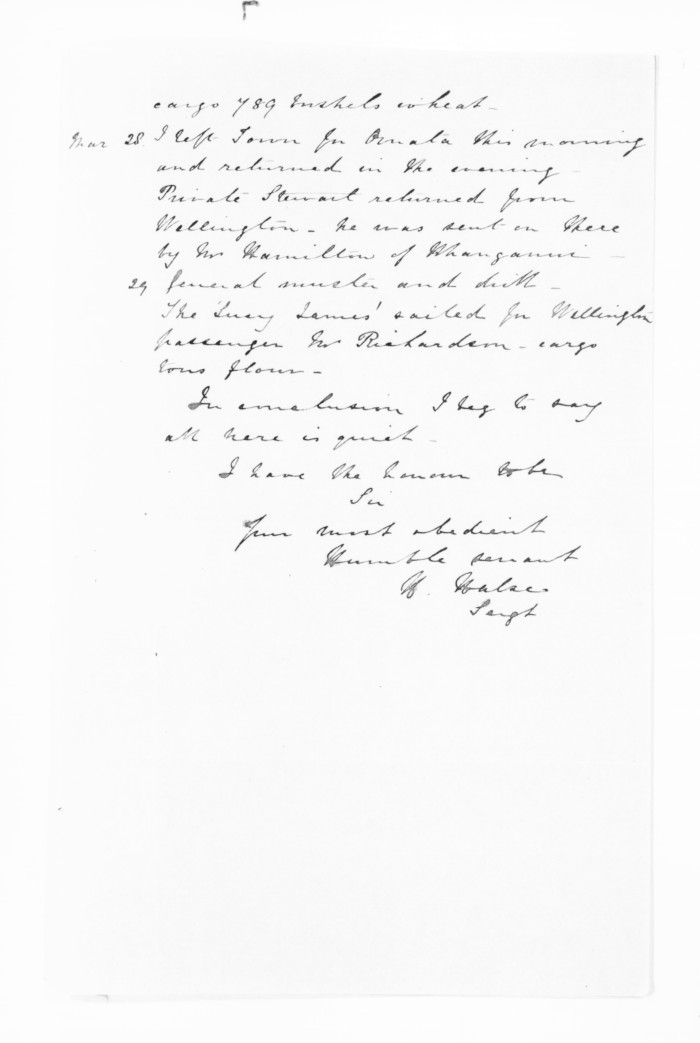 cargo 789 bushels wheat -
Mar 28. I left Town for Omata this morning
and returned in the evening -
Private Stewart returned from
Wellington - he was sent on there
by Mr Hamilton of Whanganui -
29 General muster and drill -
The 'Lucy James' sailed for Wellington
passenger Mr Richardson - cargo
tons flour -
In conclusion I beg to say
all here is quiet -
I have the honour to be
Sir
Your most obedient
Humble servant
W. Halse
Sergt